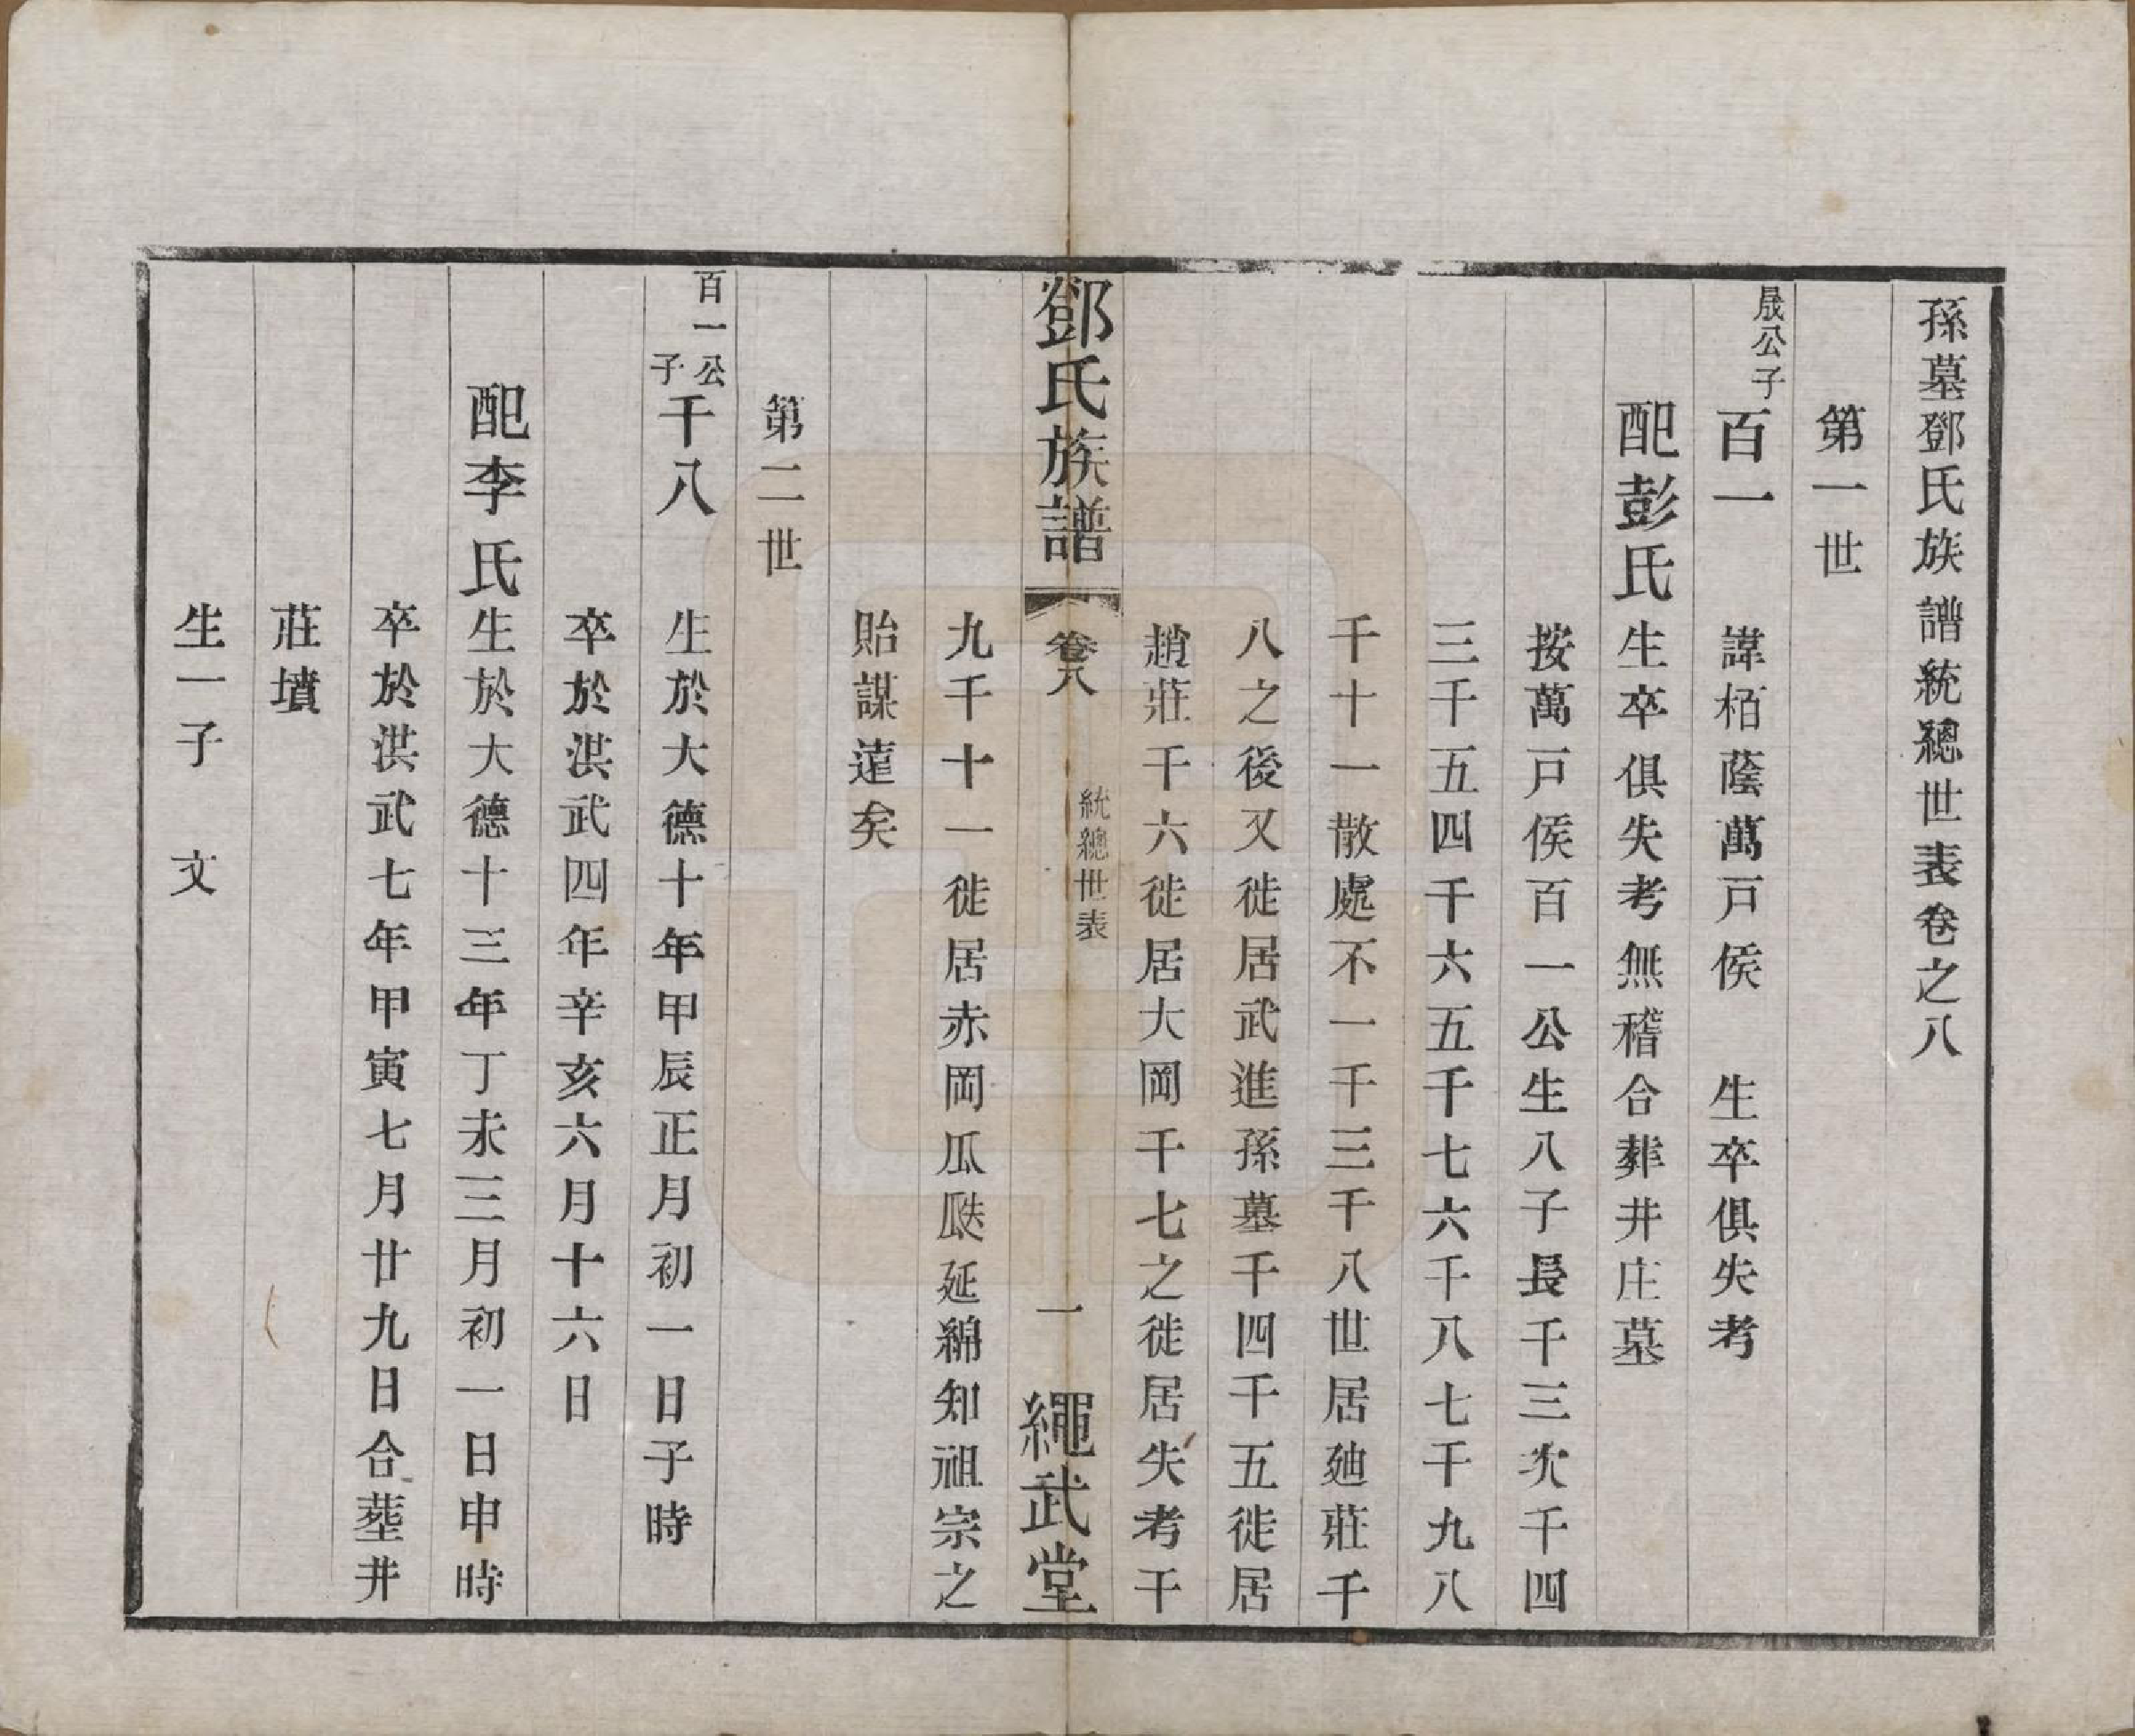 孫墓鄧氏族譜統總世表卷之八
第一世
晟公子
百一　諱栢蔭萬戸侯　生卒俱失考
配彭氏生卒俱失考無稽合葬井庄墓
按萬戸侯百一公生八子長千三次千四
三千五四千六五千七六千八七千九八
千十一散處不一千三千八世居廸莊千
八之後又徙居武進孫墓千四千五徙居
趙莊千六徙居大岡千七之徙居失考千
鄧氏族譜
卷八
統總世表
一
繩武堂
九千十一徙居赤岡瓜瓞延綿知祖宗之
貽謀遠矣
第二世
百一公子
千八　生於大德十年甲辰正月初一日子時
卒於洪武四年辛亥六月十六日
配李氏生於大德十三年丁未三月初一日申時
卒於洪武七年甲寅七月廿九日合塟井
莊墳
生一子　文